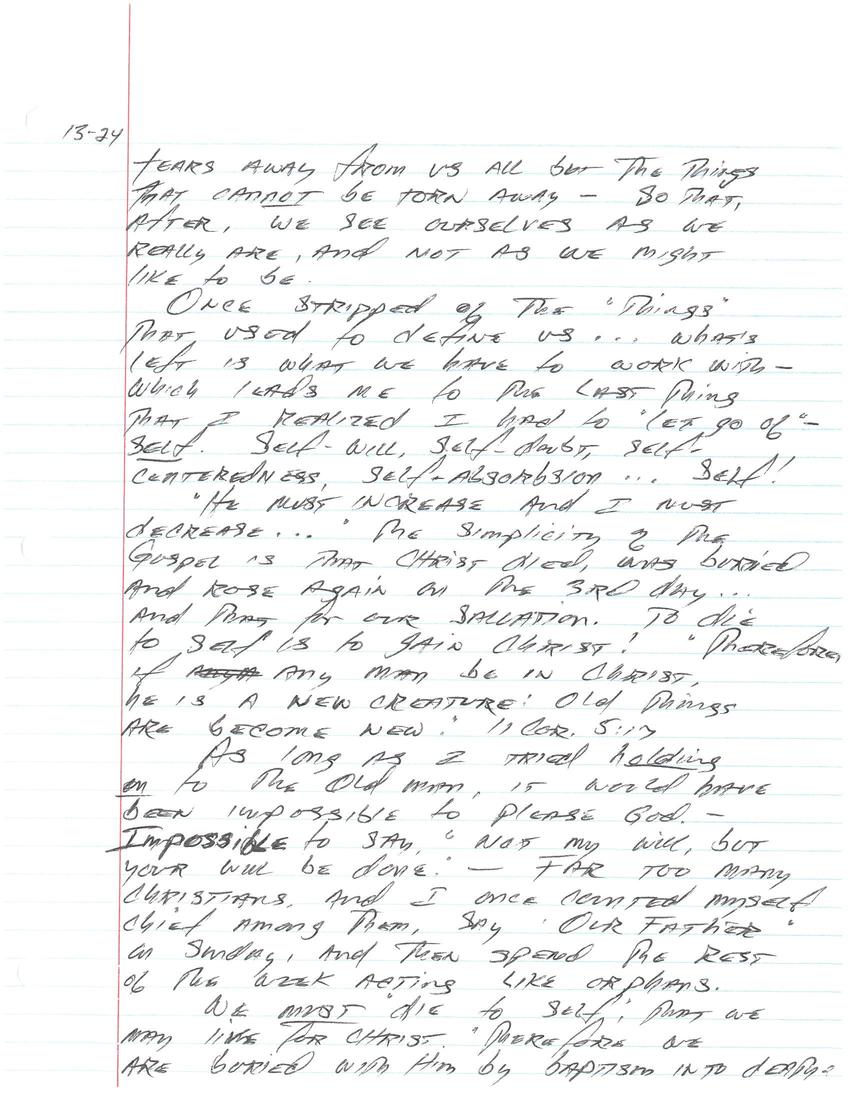 13-24
tears away from us all but the things
that cannot be torn away - so that,
after, we see ourselves as we
really are, and not as we might
like to be.
Once stripped of the "things"
that used to define us ... what's
left is what we have to work with -
which leads me to the last thing
that I realized I had to "let go of" -
self. Self-will, self-doubt, self-
centeredness, self-absorbsion ... self!
"He must increase and I must
decrease ..." The simplicity of the
Gospel is that Christ died, was buried
and rose again on the 3rd day ...
and that for our salvation. To die
to self is to gain Christ! "Therefore,
if any man be in Christ,
he is a new creature: old things
are become new." II Cor. 5:17
As long as I tried holding
on to the old man, it would have
been impossible to please God. -
Impossible to say, "Not my will, but
your will be done." - Far too many
Christians, and I once counted myself
chief among them, say "Our Father"
on Sunday, and then spend the rest
of the week acting like orphans.
We must "die to self", that we
may live for Christ. "Therefore we
are buried with Him by baptism into death: